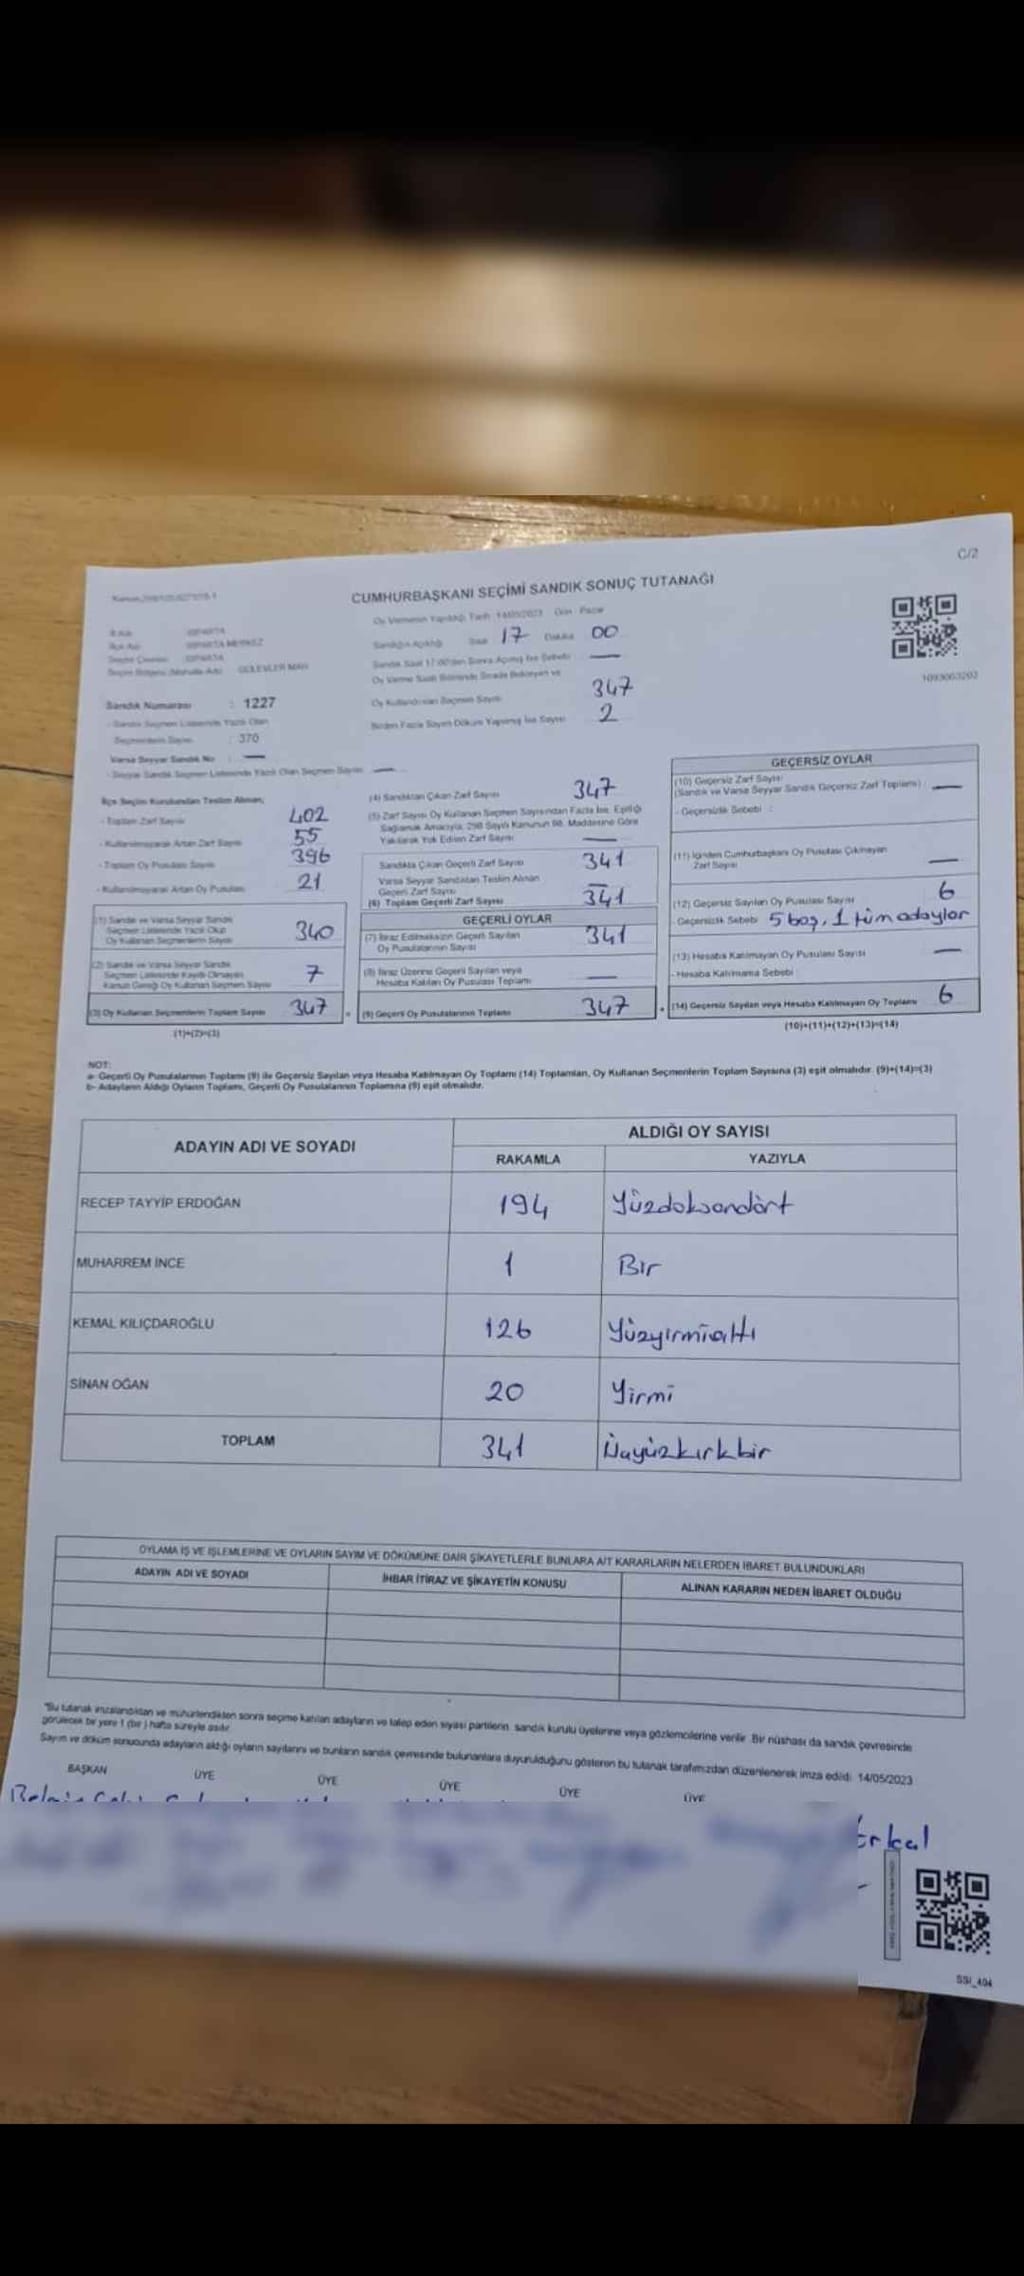 C/2
CUMHURBAŞKANI SEÇİMİ SANDIK SONUÇ TUTANAĞI
Oy Vermenin Yapıldığı Tarih 14/05/2023 Gün Pazar
Sandığın Açıldığı Saat 17 Dakika 00
Sandık Saat 17:00'den Sonra Açılmış İse Sebebi —
Oy Verme Saati Bitiminde Sırada Bekleyen ve
Oy Kullandırılan Seçmen Sayısı 347
Birden Fazla Sayım Döküm Yapılmış İse Sayısı 2
1093003202
ISPARTA
ISPARTA MERKEZ
ISPARTA
GÜLEVLER MAH
Sandık Numarası : 1227
- Sandık Seçmen Listesinde Yazılı Olan
Seçmenlerin Sayısı : 370
Varsa Seyyar Sandık No : —
- Seyyar Sandık Seçmen Listesinde Yazılı Olan Seçmen Sayısı —
İlçe Seçim Kurulundan Teslim Alınan;
- Toplam Zarf Sayısı 402
- Kullanılmayarak Artan Zarf Sayısı 55
- Toplam Oy Pusulası Sayısı 396
- Kullanılmayarak Artan Oy Pusulası 21
(1) Sandık ve Varsa Seyyar Sandık
Seçmen Listesinde Yazılı Olup
Oy Kullanan Seçmenlerin Sayısı 340
(2) Sandık ve Varsa Seyyar Sandık
Seçmen Listesinde Kayıtlı Olmayıp
Kanun Gereği Oy Kullanan Seçmen Sayısı 7
(3) Oy Kullanan Seçmenlerin Toplam Sayısı 347
(1)+(2)=(3)
(4) Sandıktan Çıkan Zarf Sayısı 347
(5) Zarf Sayısı Oy Kullanan Seçmen Sayısından Fazla İse, Eşitliği
Sağlamak Amacıyla, 298 Sayılı Kanunun 98. Maddesine Göre
Yakılarak Yok Edilen Zarf Sayısı —
Sandıkta Çıkan Geçerli Zarf Sayısı 341
Varsa Seyyar Sandıktan Teslim Alınan
Geçerli Zarf Sayısı —
(6) Toplam Geçerli Zarf Sayısı 341
GEÇERLİ OYLAR
(7) İtiraz Edilmeksizin Geçerli Sayılan
Oy Pusulalarının Sayısı 341
(8) İtiraz Üzerine Geçerli Sayılan veya
Hesaba Katılan Oy Pusulası Toplamı —
(9) Geçerli Oy Pusulalarının Toplamı 347
GEÇERSİZ OYLAR
(10) Geçersiz Zarf Sayısı
(Sandık ve Varsa Seyyar Sandık Geçersiz Zarf Toplamı) —
- Geçersizlik Sebebi :
(11) İçinden Cumhurbaşkanı Oy Pusulası Çıkmayan
Zarf Sayısı —
(12) Geçersiz Sayılan Oy Pusulası Sayısı 6
Geçersizlik Sebebi 5 boş, 1 tüm adaylar
(13) Hesaba Katılmayan Oy Pusulası Sayısı —
- Hesaba Katılmama Sebebi
(14) Geçersiz Sayılan veya Hesaba Katılmayan Oy Toplamı 6
(10)+(11)+(12)+(13)=(14)
NOT:
a- Geçerli Oy Pusulalarının Toplamı (9) ile Geçersiz Sayılan veya Hesaba Katılmayan Oy Toplamı (14) Toplamları, Oy Kullanan Seçmenlerin Toplam Sayısına (3) eşit olmalıdır. (9)+(14)=(3)
b- Adayların Aldığı Oyların Toplamı, Geçerli Oy Pusulalarının Toplamına (9) eşit olmalıdır.
ADAYIN ADI VE SOYADI ALDIĞI OY SAYISI
RAKAMLA YAZIYLA
RECEP TAYYİP ERDOĞAN 194 Yüzdoksandört
MUHARREM İNCE 1 Bir
KEMAL KILIÇDAROĞLU 126 Yüzyirmialtı
SİNAN OĞAN 20 Yirmi
TOPLAM 341 Üçyüzkırkbir
OYLAMA İŞ VE İŞLEMLERİNE VE OYLARIN SAYIM VE DÖKÜMÜNE DAİR ŞİKAYETLERLE BUNLARA AİT KARARLARIN NELERDEN İBARET BULUNDUKLARI
ADAYIN ADI VE SOYADI İHBAR İTİRAZ VE ŞİKAYETİN KONUSU ALINAN KARARIN NEDEN İBARET OLDUĞU
"Bu tutanak imzalandıktan ve mühürlendikten sonra seçime katılan adayların ve talep eden siyasi partilerin, sandık kurulu üyelerine veya gözlemcilerine verilir. Bir nüshası da sandık çevresinde
görülecek bir yere 1 (bir) hafta süreyle asılır.
Sayım ve döküm sonucunda adayların aldığı oyların sayılarını ve bunların sandık çevresinde bulunanlara duyurulduğunu gösteren bu tutanak tarafımızdan düzenlenerek imza edildi. 14/05/2023
BAŞKAN ÜYE ÜYE ÜYE ÜYE ÜYE
SSI_404